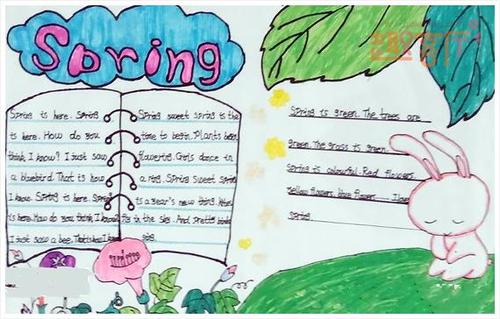 Spring
Spring is here. Spring
is here. How do you
think, I know? I just saw
a bluebird. That is how
I know. Spring is here. Spring
is here. How do you think, I know
I just saw a bee. That is how I know
Spring sweet spring is the
time to begin. Plants been
flowering. Girls dance in
a ring. Spring sweet spring
is a year's new thing.
in the sky. And pretty birds
sing.
Spring is green. The trees are
green. The grass is green.
Spring is colourful. Red flowers.
Yellow flowers. blue flowers...... I love
Spring.